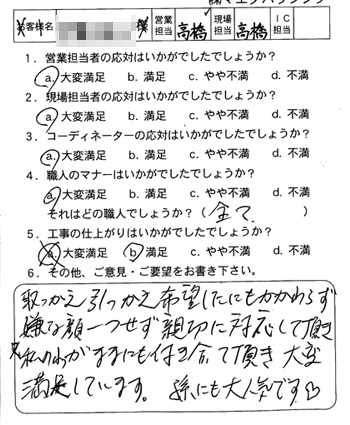 お客様名 様 営業担当 高橋 現場担当 高橋 IC担当
1．営業担当者の応対はいかがでしたでしょうか？
a. 大変満足 b. 満足 c. やや不満 d. 不満
2．現場担当者の応対はいかがでしたでしょうか？
a. 大変満足 b. 満足 c. やや不満 d. 不満
3．コーディネーターの応対はいかがでしたでしょうか？
a. 大変満足 b. 満足 c. やや不満 d. 不満
4．職人のマナーはいかがでしたでしょうか？
a. 大変満足 b. 満足 c. やや不満 d. 不満
それはどの職人でしょうか？（全て）
5．工事の仕上がりはいかがでしたでしょうか？
a. 大変満足 b. 満足 c. やや不満 d. 不満
6．その他、ご意見・ご要望をお書き下さい。
取っかえ引っかえ希望したにもかかわらず
嫌な顔一つせず親切に対応して頂き
私のわがままにも付き合て頂き大変
満足しています。孫にも大人気です♡